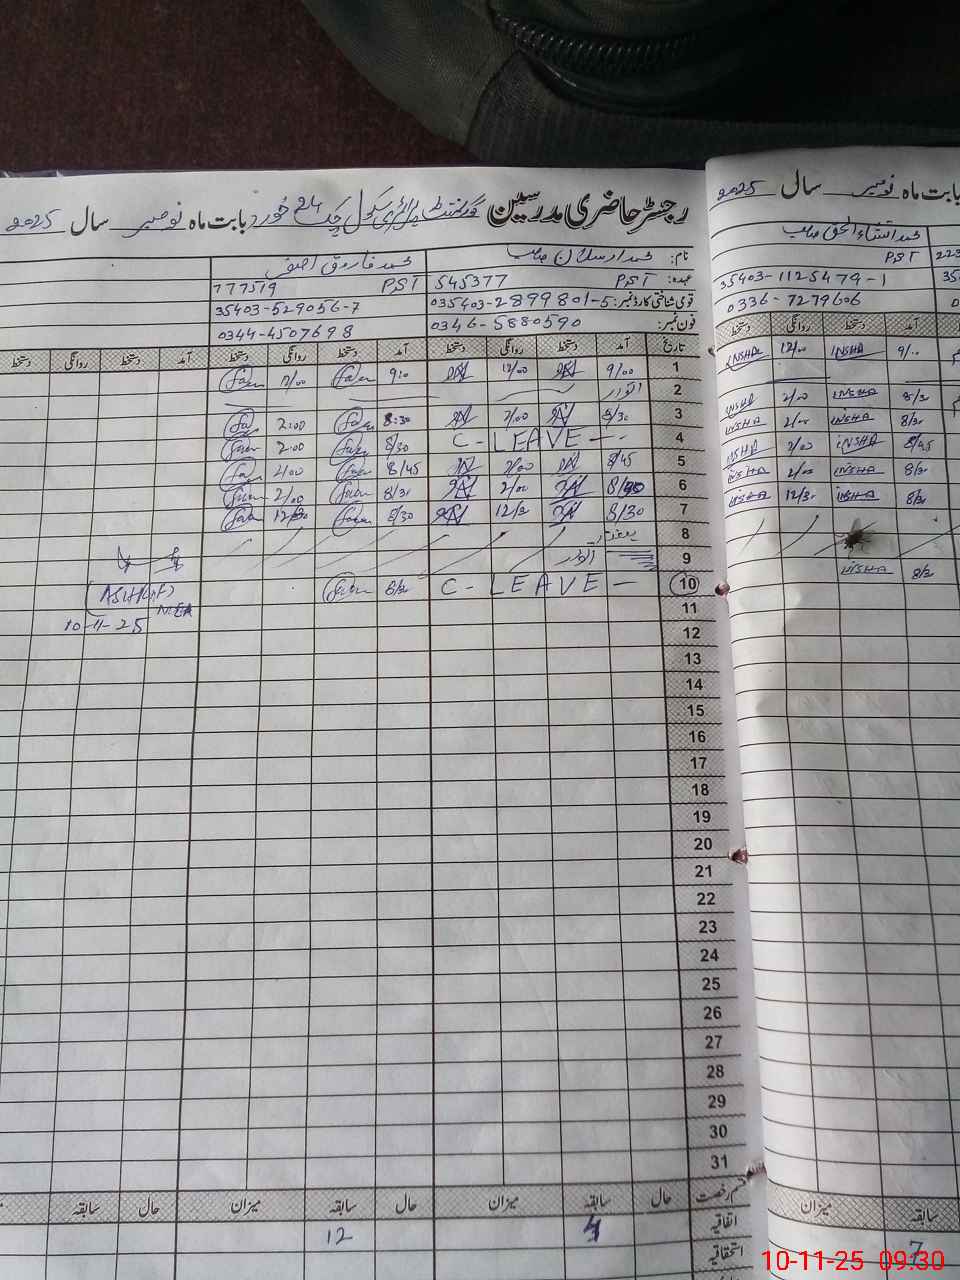 رجسٹر حاضری مدرسین گورنمنٹ پرائمری سکول چک 24 خورد بابت ماہ نومبر سال 2025
نام: محمد ارسلان صاحب محمد فاروق آصف
عہدہ: PST 545377 PST 777519
قومی شناختی کارڈ نمبر: 035403-2899801-5 35403-529056-7
فون نمبر: 0346-5880590 0344-4507698
تاریخ آمد دستخط روانگی دستخط آمد دستخط روانگی دستخط آمد دستخط روانگی دستخط
1 9/00 12/00 9:0 12/00
2 اتوار
3 8/30 2/00 8:30 2:00
4 C-LEAVE 8/30 2:00
5 8/45 2/00 8/45 2/00
6 2/00 8/30 2/00
7 8/30 12/30 8/30 12/30
8
9 اتوار
10 C-LEAVE 8/30
11
12
13
14
15
16
17
18
19
20
21
22
23
24
25
26
27
28
29
30
31
قسم رخصت حال سابقہ میزان حال سابقہ میزان حال سابقہ
اتفاقیہ 4 12
استحقاقیہ
MEA
10-11-25
بابت ماہ نومبر سال 2025
PST
35403-1125479-1
0336-7279606
آمد دستخط روانگی دستخط
9/00 INSHA 12/00 INSHA
8/30 INSHA 2/00 INSHA
8/30 INSHA 2/00 INSHA
8/45 INSHA 2/00 INSHA
8/30 INSHA 2/00 INSHA
8/30 INSHA 12/30 INSHA
8/30 INSHA
سابقہ میزان
7
10-11-25 09.30